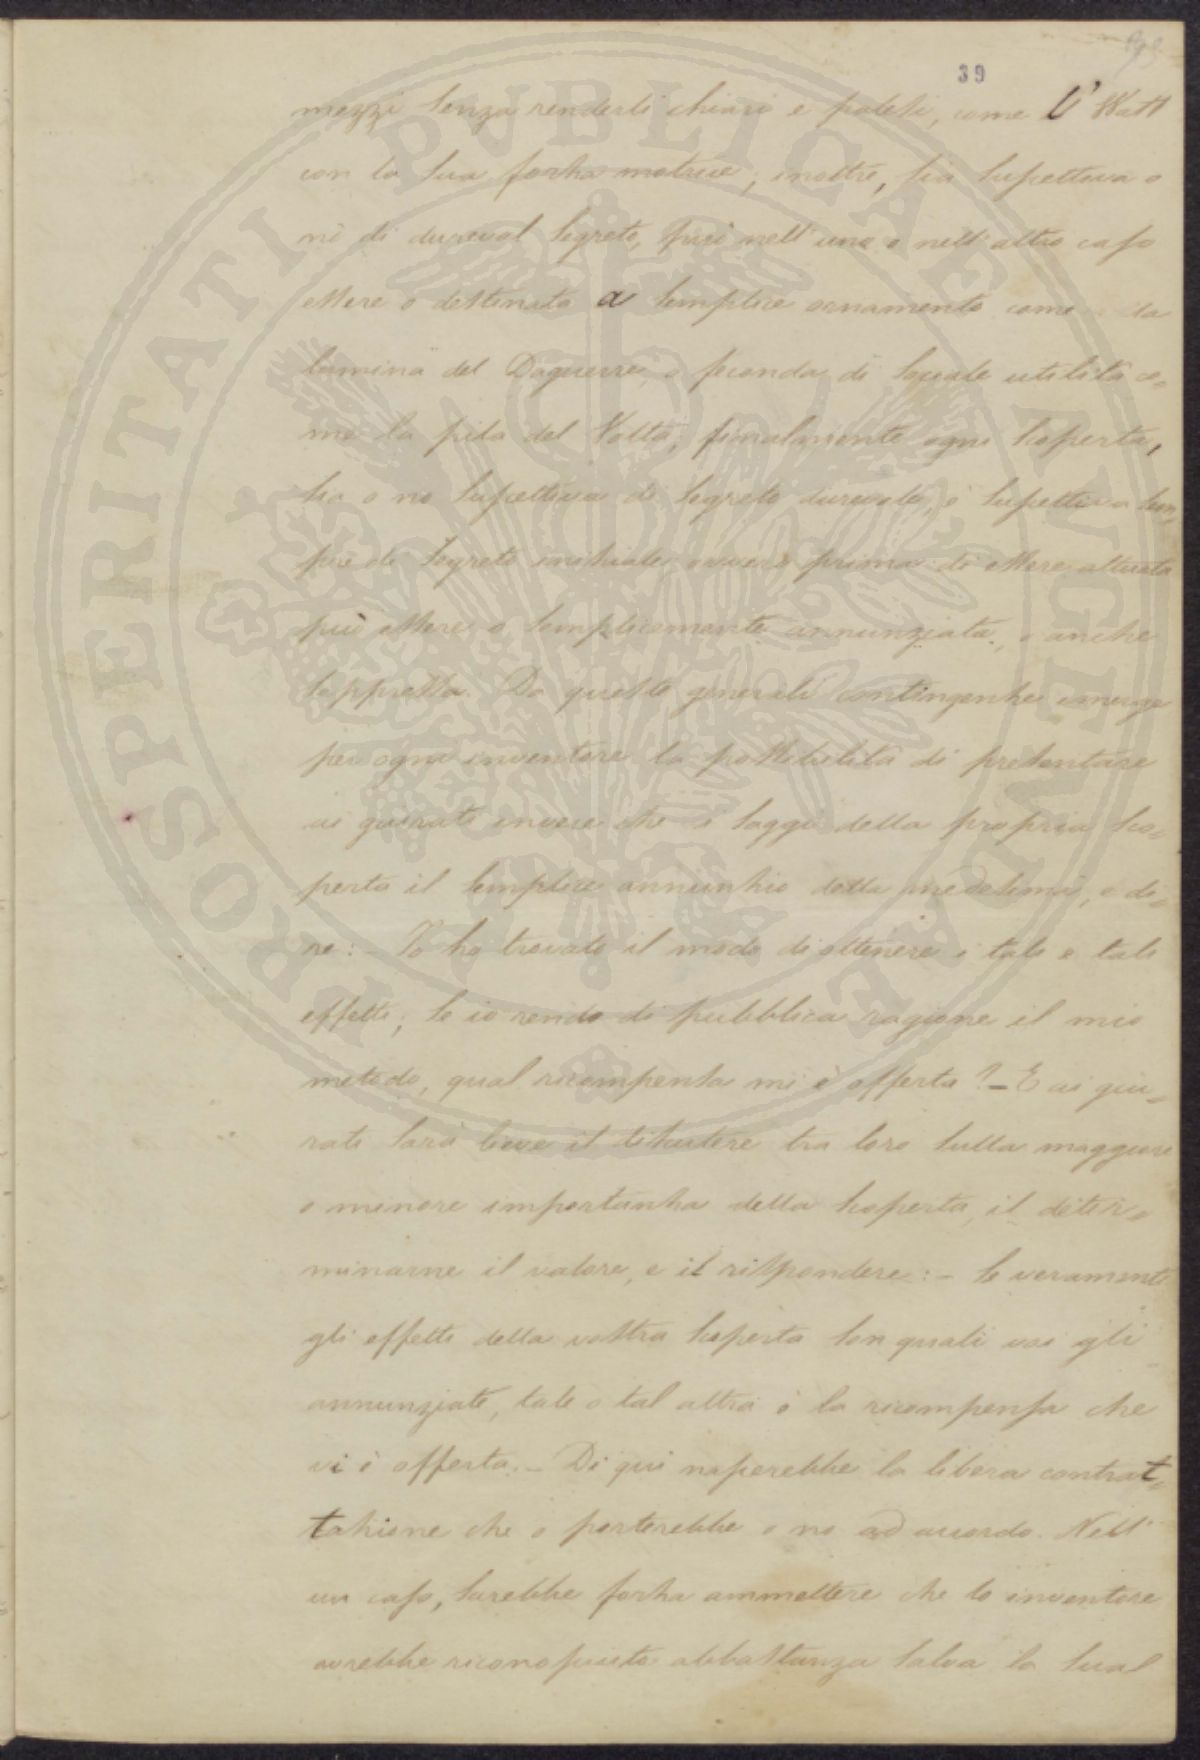 39
mezzi senza renderli chiari e palesi, come il Watt
con la sua forza motrice; inoltre, sia suscettiva o
nò di dureval segreto, può nell'uno o nell'altro caso
essere o destinata a semplice ornamento come la
lamina del Daguerre, o feconda di sociale utilità co=
me la pila del Volta; finalmente ogni scoperta,
sia o no suscettiva di segreto durevole, è suscettiva sem
pre di segreto iniziale ovvero prima di essere attuata
può essere o semplicemente annunziata, o anche
soppressa. Da queste generali contingenze emerge
per ogni inventore la possibilità di presentare
ai giurati invece che i saggi della propria sco=
perta il semplice annunzio della medesima, e di=
re: – Io ho trovato il modo di ottenere i tali e tali
effetti; se io rendo di pubblica ragione il mio
metodo, qual ricompensa mi è offerta? – E ai giu=
rati sarà lieve il discutere tra loro sulla maggiore
o minore importanza della scoperta, il deter=
minarne il valore, e il rispondere: – se veramente
gli effetti della vostra scoperta son quali voi gli
annunziate, tale o tal altra è la ricompensa che
vi è offerta. – Di qui nascerebbe la libera contrat=
tazione che o porterebbe o no ad accordo. Nell'
un caso, sarebbe forza ammettere che lo inventore
avrebbe riconosciuto abbastanza salva la sua
PROSPERITATI PVBLICAE AVGENDAE